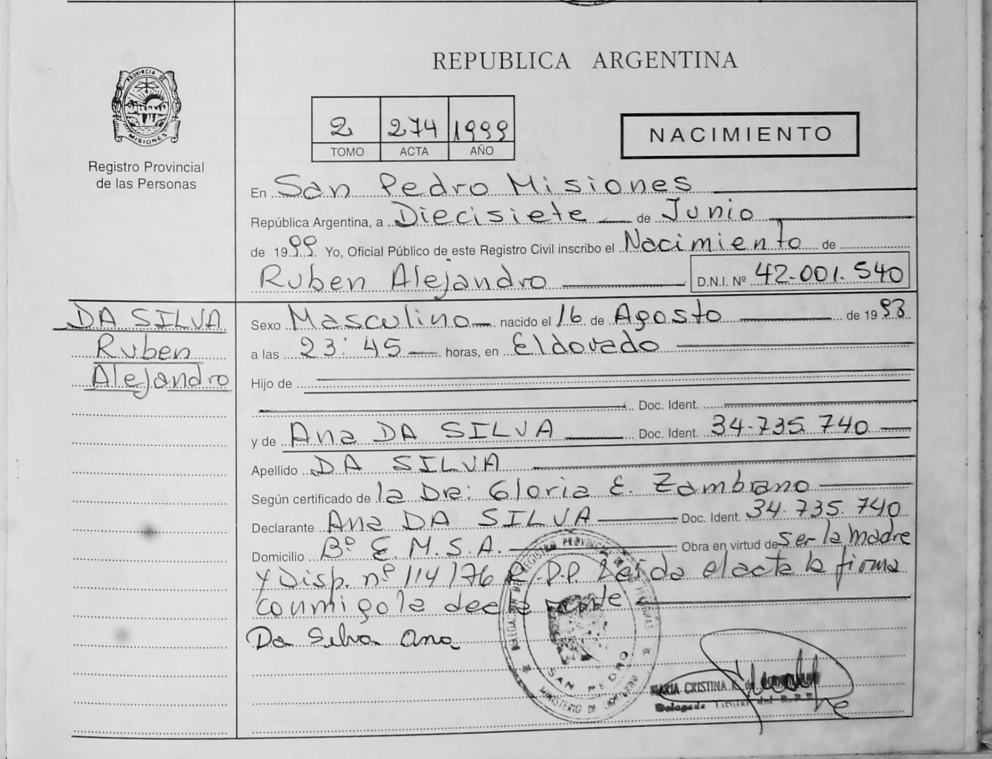 REPUBLICA ARGENTINA
PROVINCIA DE MISIONES
Registro Provincial
de las Personas
2 274 1999
TOMO ACTA AÑO
NACIMIENTO
En San Pedro Misiones
República Argentina, a Diecisiete de Junio
de 1999 Yo, Oficial Público de este Registro Civil inscribo el Nacimiento de
Ruben Alejandro D.N.I. Nº 42.001.540
DA SILVA
Ruben
Alejandro
Sexo Masculino nacido el 16 de Agosto de 1993
a las 23:45 horas, en Eldorado
Hijo de
Doc. Ident.
y de Ana DA SILVA Doc. Ident. 34.735.740
Apellido DA SILVA
Según certificado de la Dra: Gloria E. Zambrano
Declarante Ana DA SILVA Doc. Ident. 34.735.740
Domicilio Bº E.M.S.A. Obra en virtud de ser la madre
y Disp. nº 114/76 R.P.P. Leída el acta la firma
conmigo la declarante
Da Silva Ana
SAN PEDRO
MINISTERIO DE GOBIERNO
MARIA CRISTINA
Delegada Titular del R.P.P.